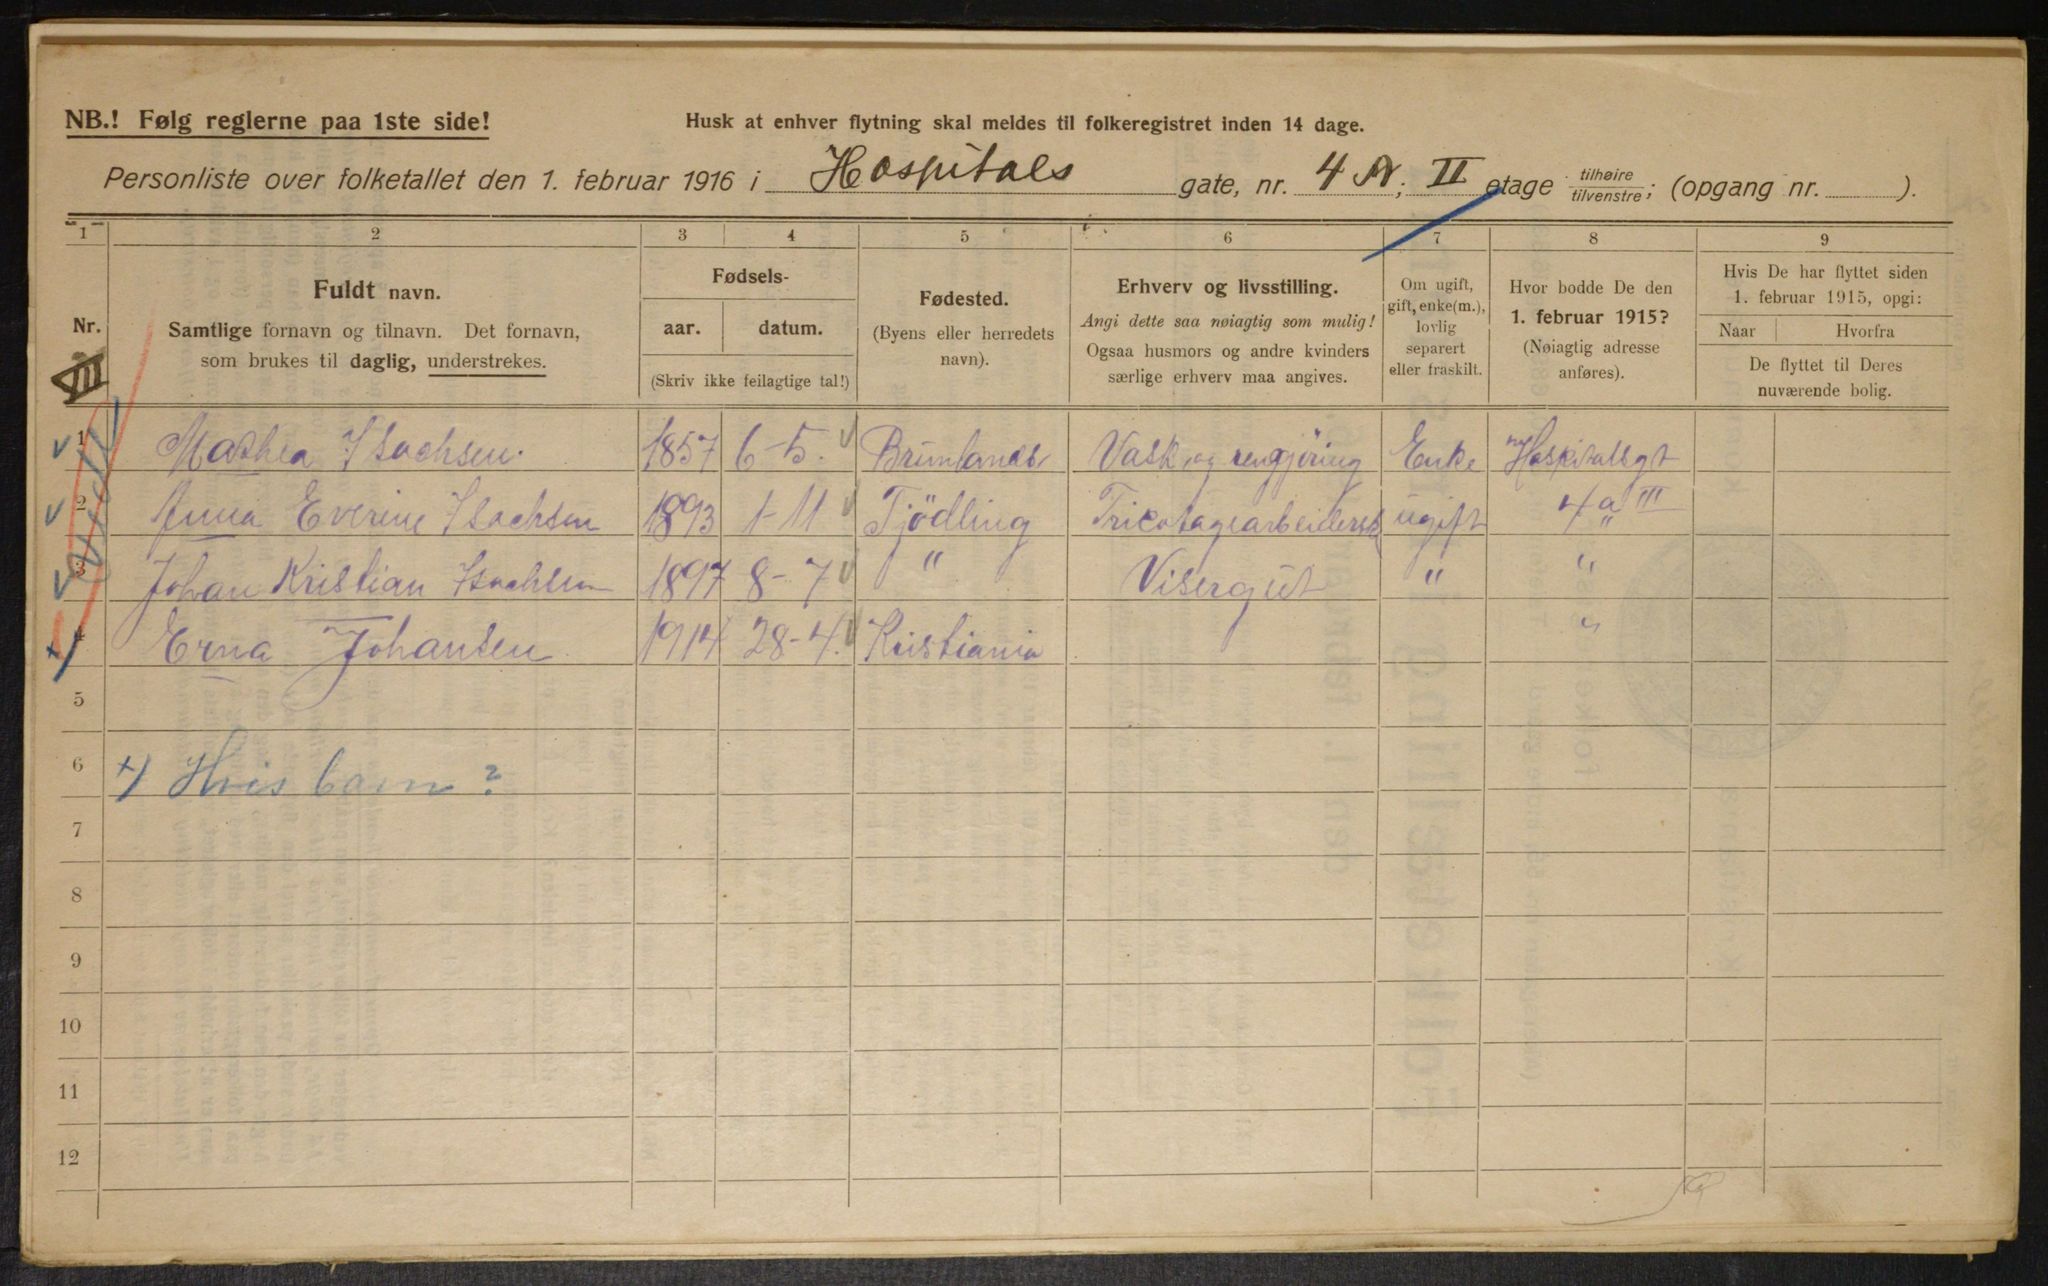 NB.! Følg reglerne paa 1ste side!
Husk at enhver flytning skal meldes til folkeregistret inden 14 dage.
Personliste over folketallet den 1. februar 1916 i Hospitals gate, nr. 4 A; II etage tilhøire/tilvenstre; (opgang nr. ).
1 2 3 4 5 6 7 8 9
Nr.
Fuldt navn.
Samtlige fornavn og tilnavn. Det fornavn,
som brukes til daglig, understrekes.
Fødsels-
aar. datum.
(Skriv ikke feilagtige tal!)
Fødested.
(Byens eller herredets
navn).
Erhverv og livsstilling.
Angi dette saa nøiagtig som mulig!
Ogsaa husmors og andre kvinders
særlige erhverv maa angives.
Om ugift,
gift, enke(m.),
lovlig
separert
eller fraskilt.
Hvor bodde De den
1. februar 1915?
(Nøiagtig adresse
anføres).
Hvis De har flyttet siden
1. februar 1915, opgi:
Naar Hvorfra
De flyttet til Deres
nuværende bolig.
VII
1 Mathea Isachsen. 1857 6-5. Brunlanes Vask og rengjöring Enke Hospitalsgt
2 Anna Everine Isachsen 1893 1-11 Tjödling Tricotagearbeiderske ugift 4a III
3 Johan Kristian Isachsen 1897 8-7 " Visergut " "
4 Erna Johansen 1914 28-4. Kristiania "
5
6 +) Hvis barn?
7
8
9
10
11
12